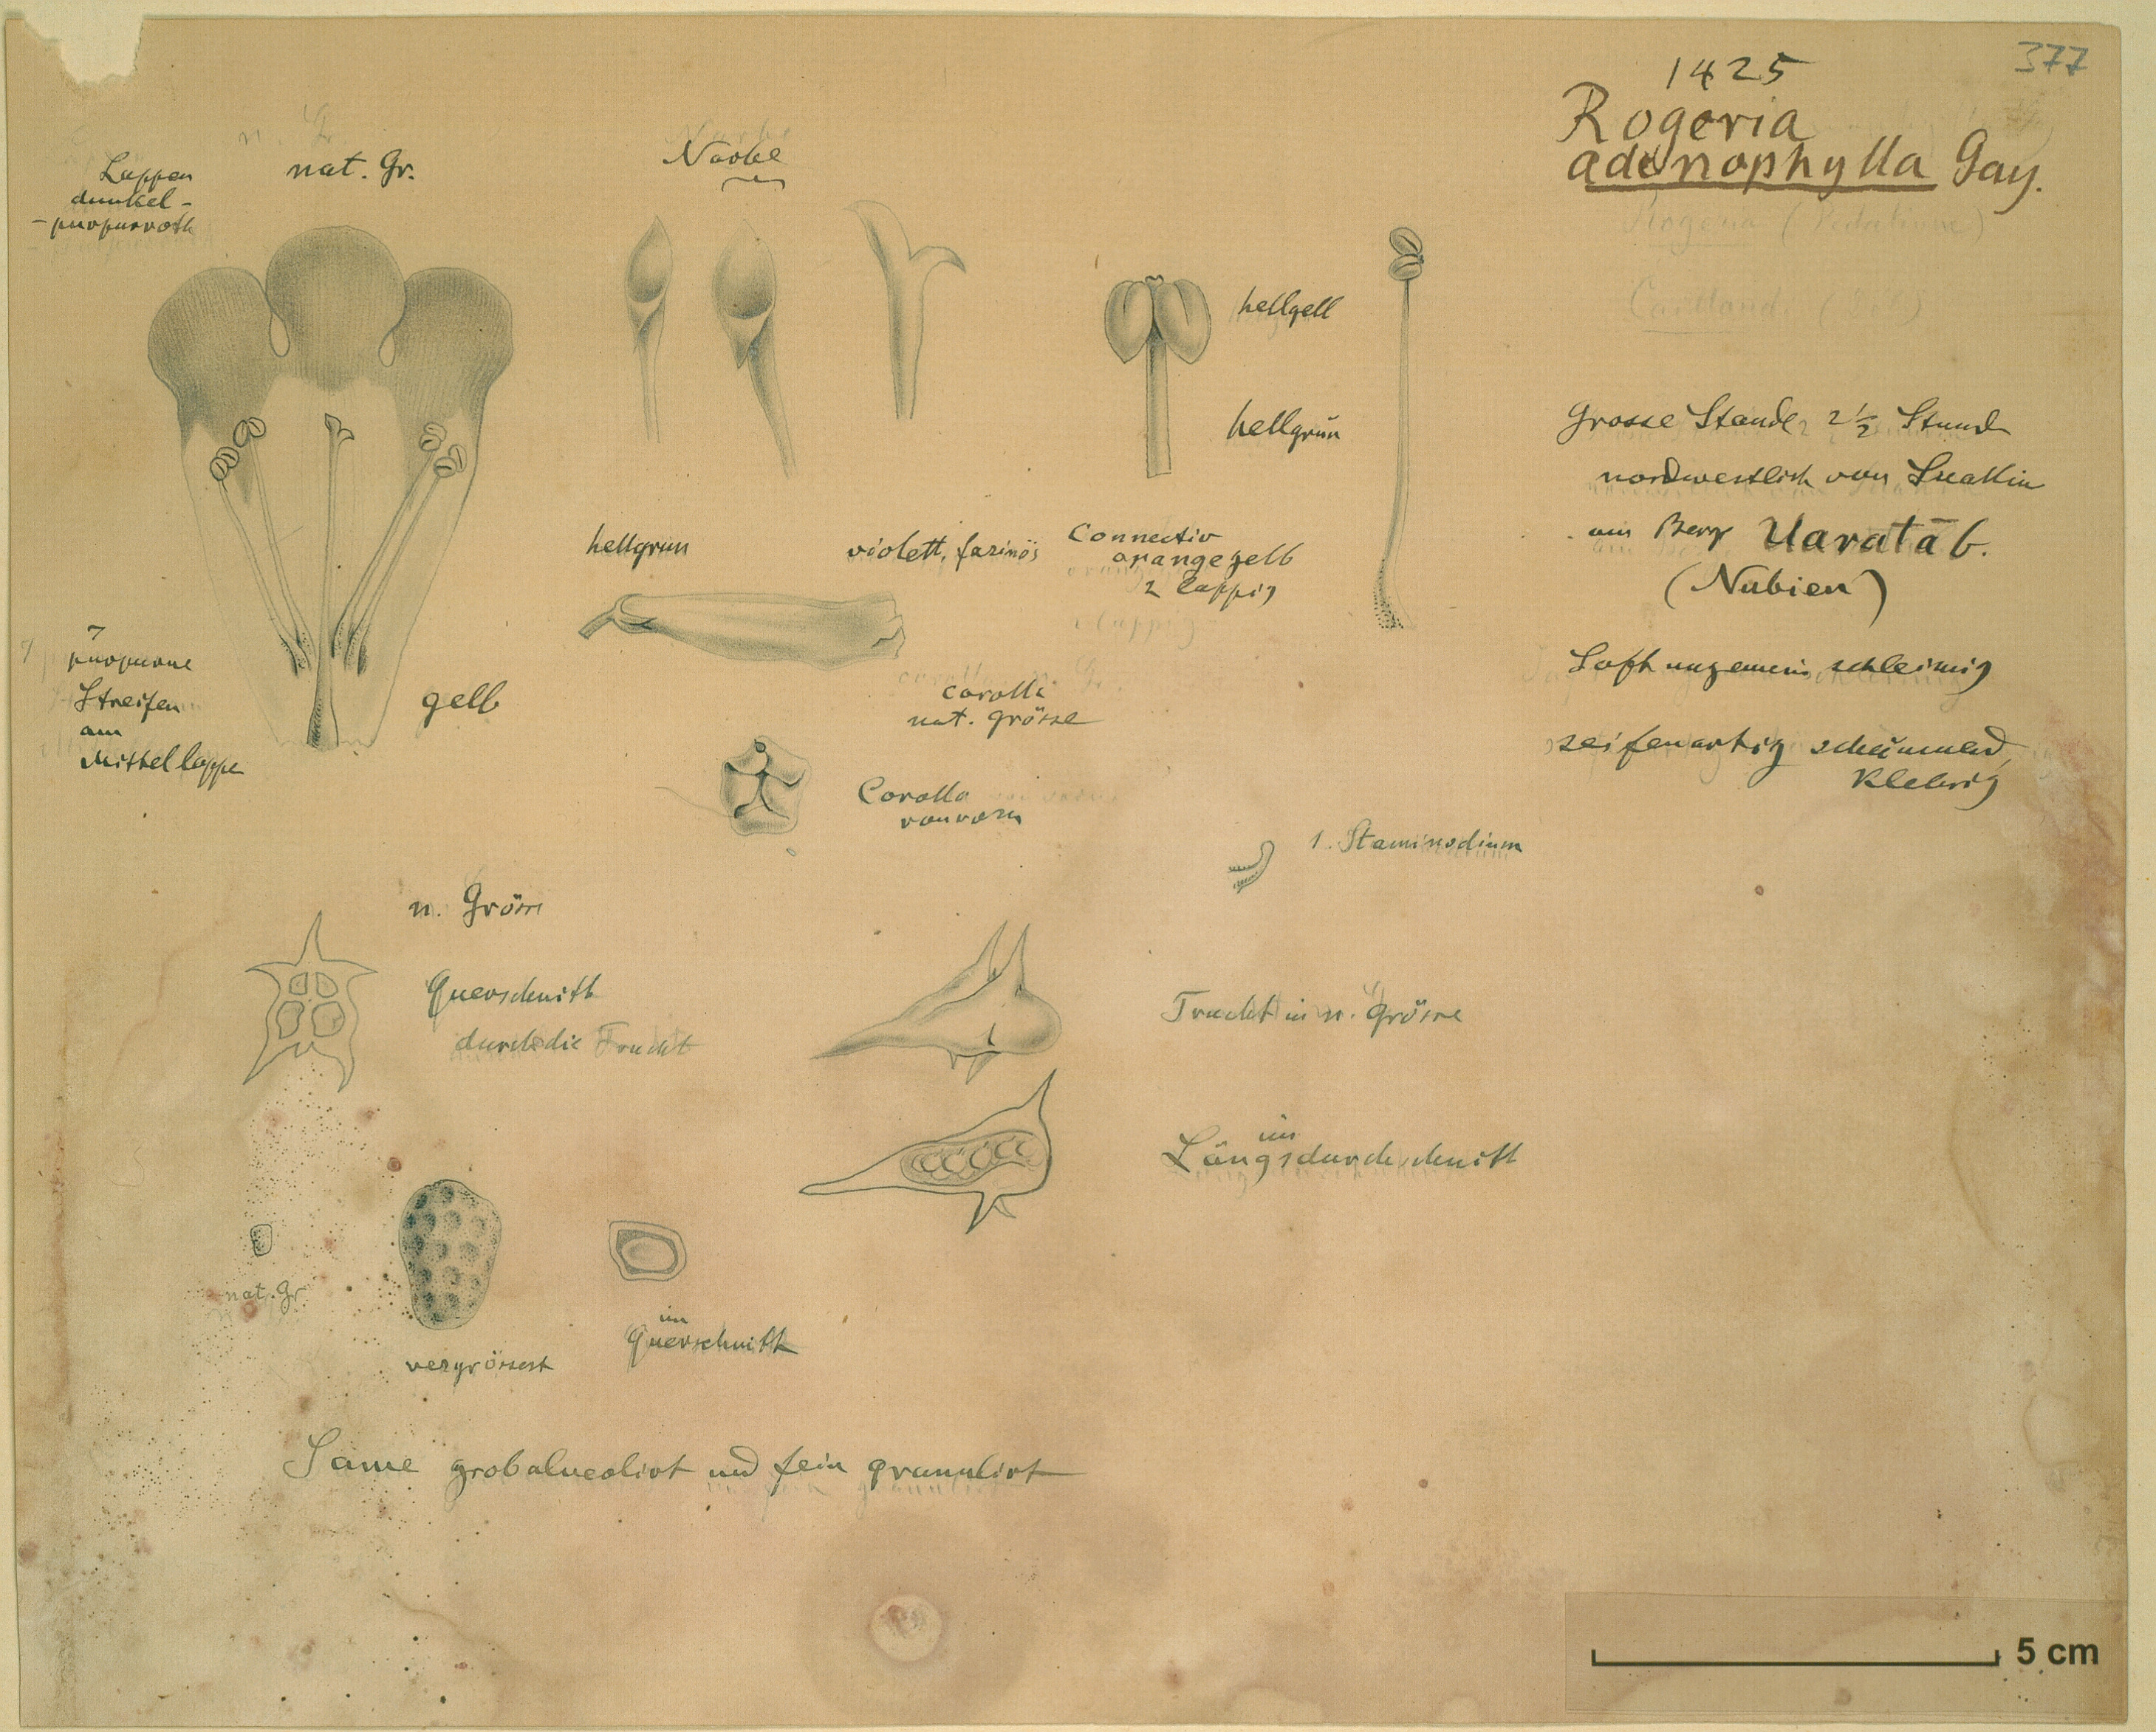 377
1425
Rogeria
adenophylla Gay.
Rogeria (Pedalineae)
Lappen
dunkel-
-purpurroth
nat. Gr.
Narbe
hellgelb
hellgrün
Grosse Staude, 2 1/2 Stund
nordwestlich von Suakin
am Berg Uaratāb.
(Nubien)
Saft ungemein schleimig
seifenartig schäumend,
klebrig
hellgrun
violett, farinös
Connectiv
orangegelb
2 lappig
7
purpurne
Streifen
am
Mittellappe
gelb
corolla
nat. grösse
Corolla
von vorn
1. Staminodium
n. Grösse
Querschnitt
durch die Frucht
Frucht in n. Grösse
im
Längsdurchschnitt
nat. gr.
vergrössert
im
Querschnitt
Same grobalveolirt und fein granulirt
5 cm